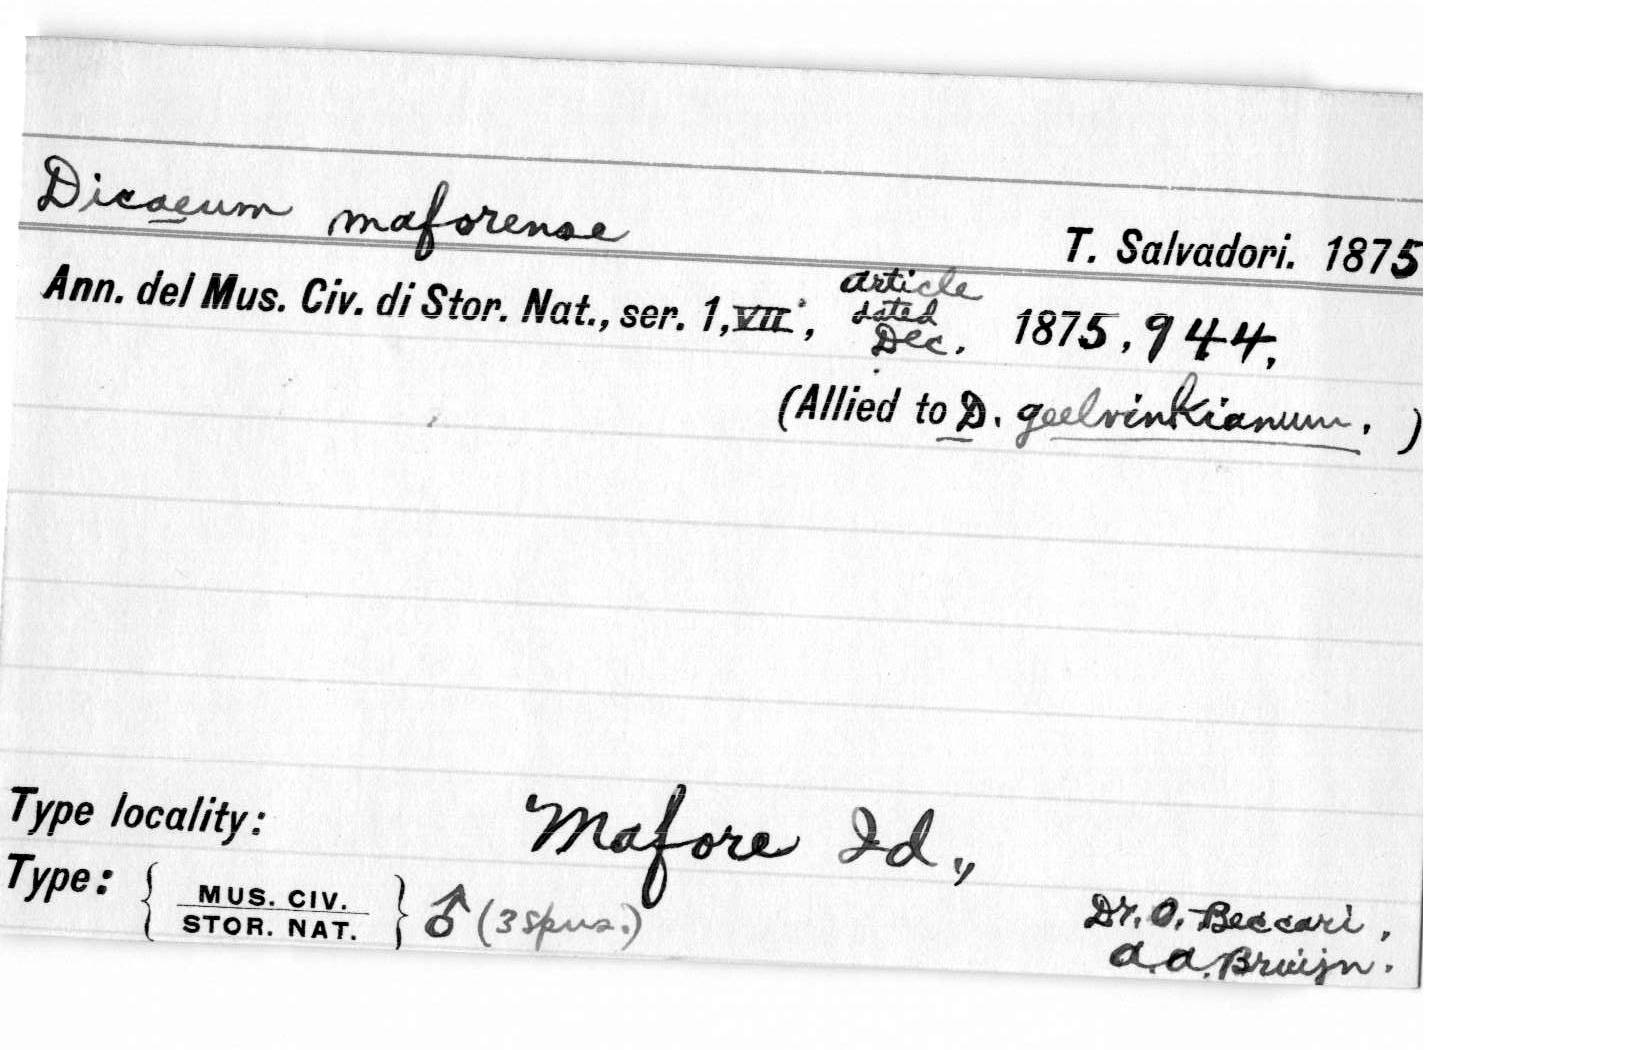 Dicaeum maforense
T. Salvadori. 1875
Ann. del Mus. Civ. di Stor. Nat., ser. 1, VII, article dated Dec. 1875, 944,
(Allied to D. geelvinkianum. )
Type locality: Mafore Id.,
Type: { MUS. CIV. STOR. NAT. } ♂ (3 spns.)
Dr. O. Beccari,
A. A. Bruijn.